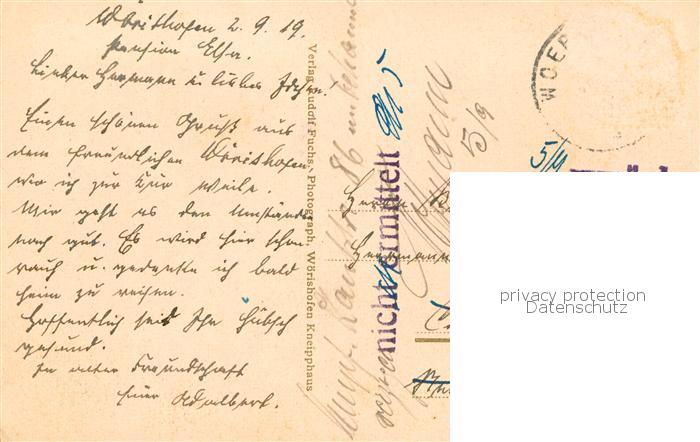 Wörishofen 2. 9. 19.
Pension Elsa.
Lieber Hermann u. liebes
Einen schönen Gruß aus
dem freundlichen Wörishofen,
wo ich zur Kur weile.
Mir geht es den Umständen
nach gut. Es wird hier schon
rauh u. gedenke ich bald
heim zu reisen.
Hoffentlich seid Ihr hübsch
gesund.
In alter Freundschaft
Euer Adalbert.
Verlag Rudolf Fuchs, Photograph, Wörishofen Kneipphaus
86 unbekannt
nicht ermittelt
5/9
5/9
WOER
Herrn
Hermann
privacy protection
Datenschutz